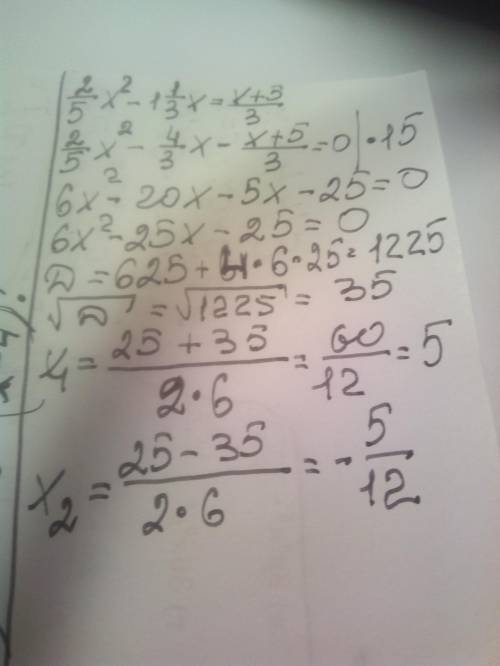 2/5 x² - 1 1/3 x = x+5/3
2/5 x² - 4/3 x - x+5/3 = 0 | · 15
6x² - 20x - 5x - 25 = 0
6x² - 25x - 25 = 0
D = 625 + 4 · 6 · 25 = 1225
√D = √1225 = 35
x₁ = 25 + 35 / 2 · 6 = 60/12 = 5
x₂ = 25 - 35 / 2 · 6 = - 5/12